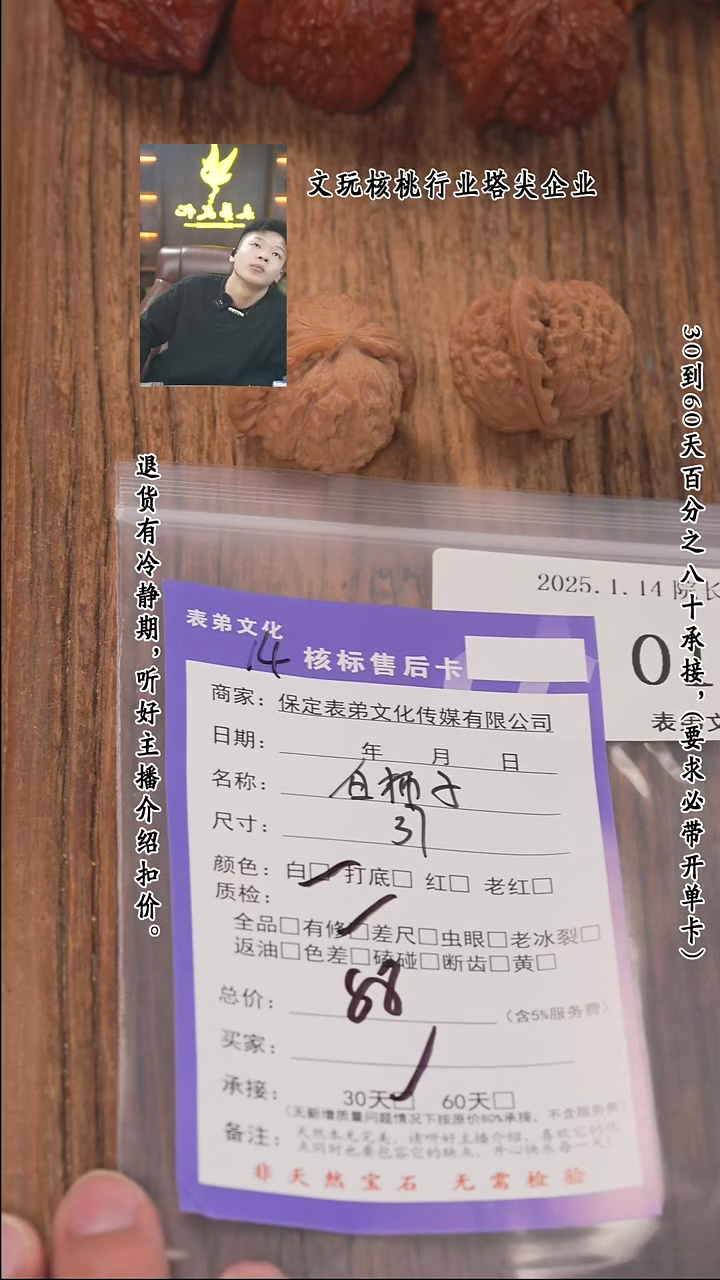 文玩核桃行业塔尖企业
30到60天百分之八十承接，（要求必带开单卡）
退货有冷静期，听好主播介绍扣价。
2025.1.14 院长
0
表弟文
表弟文化
14
核标售后卡
商家：保定表弟文化传媒有限公司
日期： 年 月 日
名称：白狮子
尺寸：37
颜色：白□ 打底□ 红□ 老红□
质检：
全品□有修□差尺□虫眼□老冰裂□
返油□色差□磕碰□断齿□黄□
总价： 88 （含5%服务费）
买家：
承接： 30天□ 60天□
（无新增质量问题情况下按原价80%承接，不含服务费
备注：天然本无完美，请听好主播介绍，喜欢它的优
点同时也要包容它的缺点，开心快乐每一天！
非天然宝石 无需检验